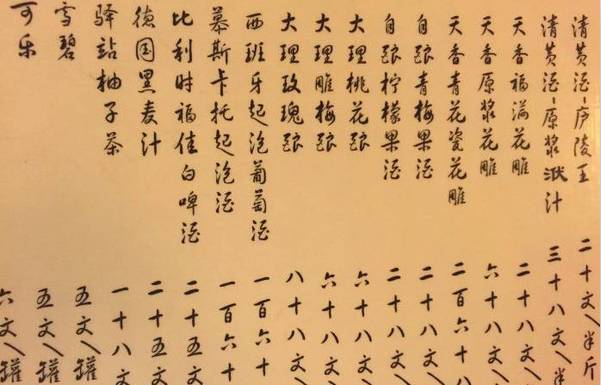 清黄酒-庐陵王 二十文/半斤
清黄酒-原浆 汁 三十八文/半
天香福满花雕 二十八文/
天香原浆花雕 六十八文/
天香青花瓷花雕 二百六十
自酿青梅果酒 二十八文/
自酿柠檬果酒 二十八文/
大理桃花酿 六十八文
大理雕梅酿 六十八文
大理玫瑰酿 八十八文
西班牙起泡葡萄酒 一百六十
慕斯卡托起泡酒 一百六十
比利时福佳白啤酒 二十五文
德国黑麦汁 二十五文
驿站柚子茶 一十八文
雪碧 五文/罐
可乐 五文/罐
六文/罐